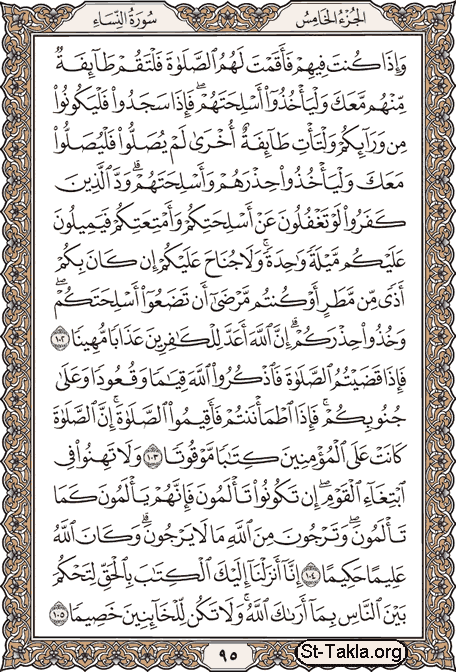 الجزء الخامس
سورة النساء
وَإِذَا كُنتَ فِيهِمْ فَأَقَمْتَ لَهُمُ ٱلصَّلَوٰةَ فَلْتَقُمْ طَآئِفَةٌ
مِّنْهُم مَّعَكَ وَلْيَأْخُذُوٓا۟ أَسْلِحَتَهُمْ ۖ فَإِذَا سَجَدُوا۟ فَلْيَكُونُوا۟
مِن وَرَآئِكُمْ وَلْتَأْتِ طَآئِفَةٌ أُخْرَىٰ لَمْ يُصَلُّوا۟ فَلْيُصَلُّوا۟
مَعَكَ وَلْيَأْخُذُوا۟ حِذْرَهُمْ وَأَسْلِحَتَهُمْ ۗ وَدَّ ٱلَّذِينَ
كَفَرُوا۟ لَوْ تَغْفُلُونَ عَنْ أَسْلِحَتِكُمْ وَأَمْتِعَتِكُمْ فَيَمِيلُونَ
عَلَيْكُم مَّيْلَةً وَٰحِدَةً ۚ وَلَا جُنَاحَ عَلَيْكُمْ إِن كَانَ بِكُمْ
أَذًى مِّن مَّطَرٍ أَوْ كُنتُم مَّرْضَىٰٓ أَن تَضَعُوٓا۟ أَسْلِحَتَكُمْ ۖ
وَخُذُوا۟ حِذْرَكُمْ ۗ إِنَّ ٱللَّهَ أَعَدَّ لِلْكَٰفِرِينَ عَذَابًا مُّهِينًا ١٠٢
فَإِذَا قَضَيْتُمُ ٱلصَّلَوٰةَ فَٱذْكُرُوا۟ ٱللَّهَ قِيَٰمًا وَقُعُودًا وَعَلَىٰ
جُنُوبِكُمْ ۚ فَإِذَا ٱطْمَأْنَنتُمْ فَأَقِيمُوا۟ ٱلصَّلَوٰةَ ۚ إِنَّ ٱلصَّلَوٰةَ
كَانَتْ عَلَى ٱلْمُؤْمِنِينَ كِتَٰبًا مَّوْقُوتًا ١٠٣ وَلَا تَهِنُوا۟ فِى
ٱبْتِغَآءِ ٱلْقَوْمِ ۖ إِن تَكُونُوا۟ تَأْلَمُونَ فَإِنَّهُمْ يَأْلَمُونَ كَمَا
تَأْلَمُونَ ۖ وَتَرْجُونَ مِنَ ٱللَّهِ مَا لَا يَرْجُونَ ۗ وَكَانَ ٱللَّهُ
عَلِيمًا حَكِيمًا ١٠٤ إِنَّآ أَنزَلْنَآ إِلَيْكَ ٱلْكِتَٰبَ بِٱلْحَقِّ لِتَحْكُمَ
بَيْنَ ٱلنَّاسِ بِمَآ أَرَىٰكَ ٱللَّهُ ۚ وَلَا تَكُن لِّلْخَآئِنِينَ خَصِيمًا ١٠٥
٩٥
St-Takla.org